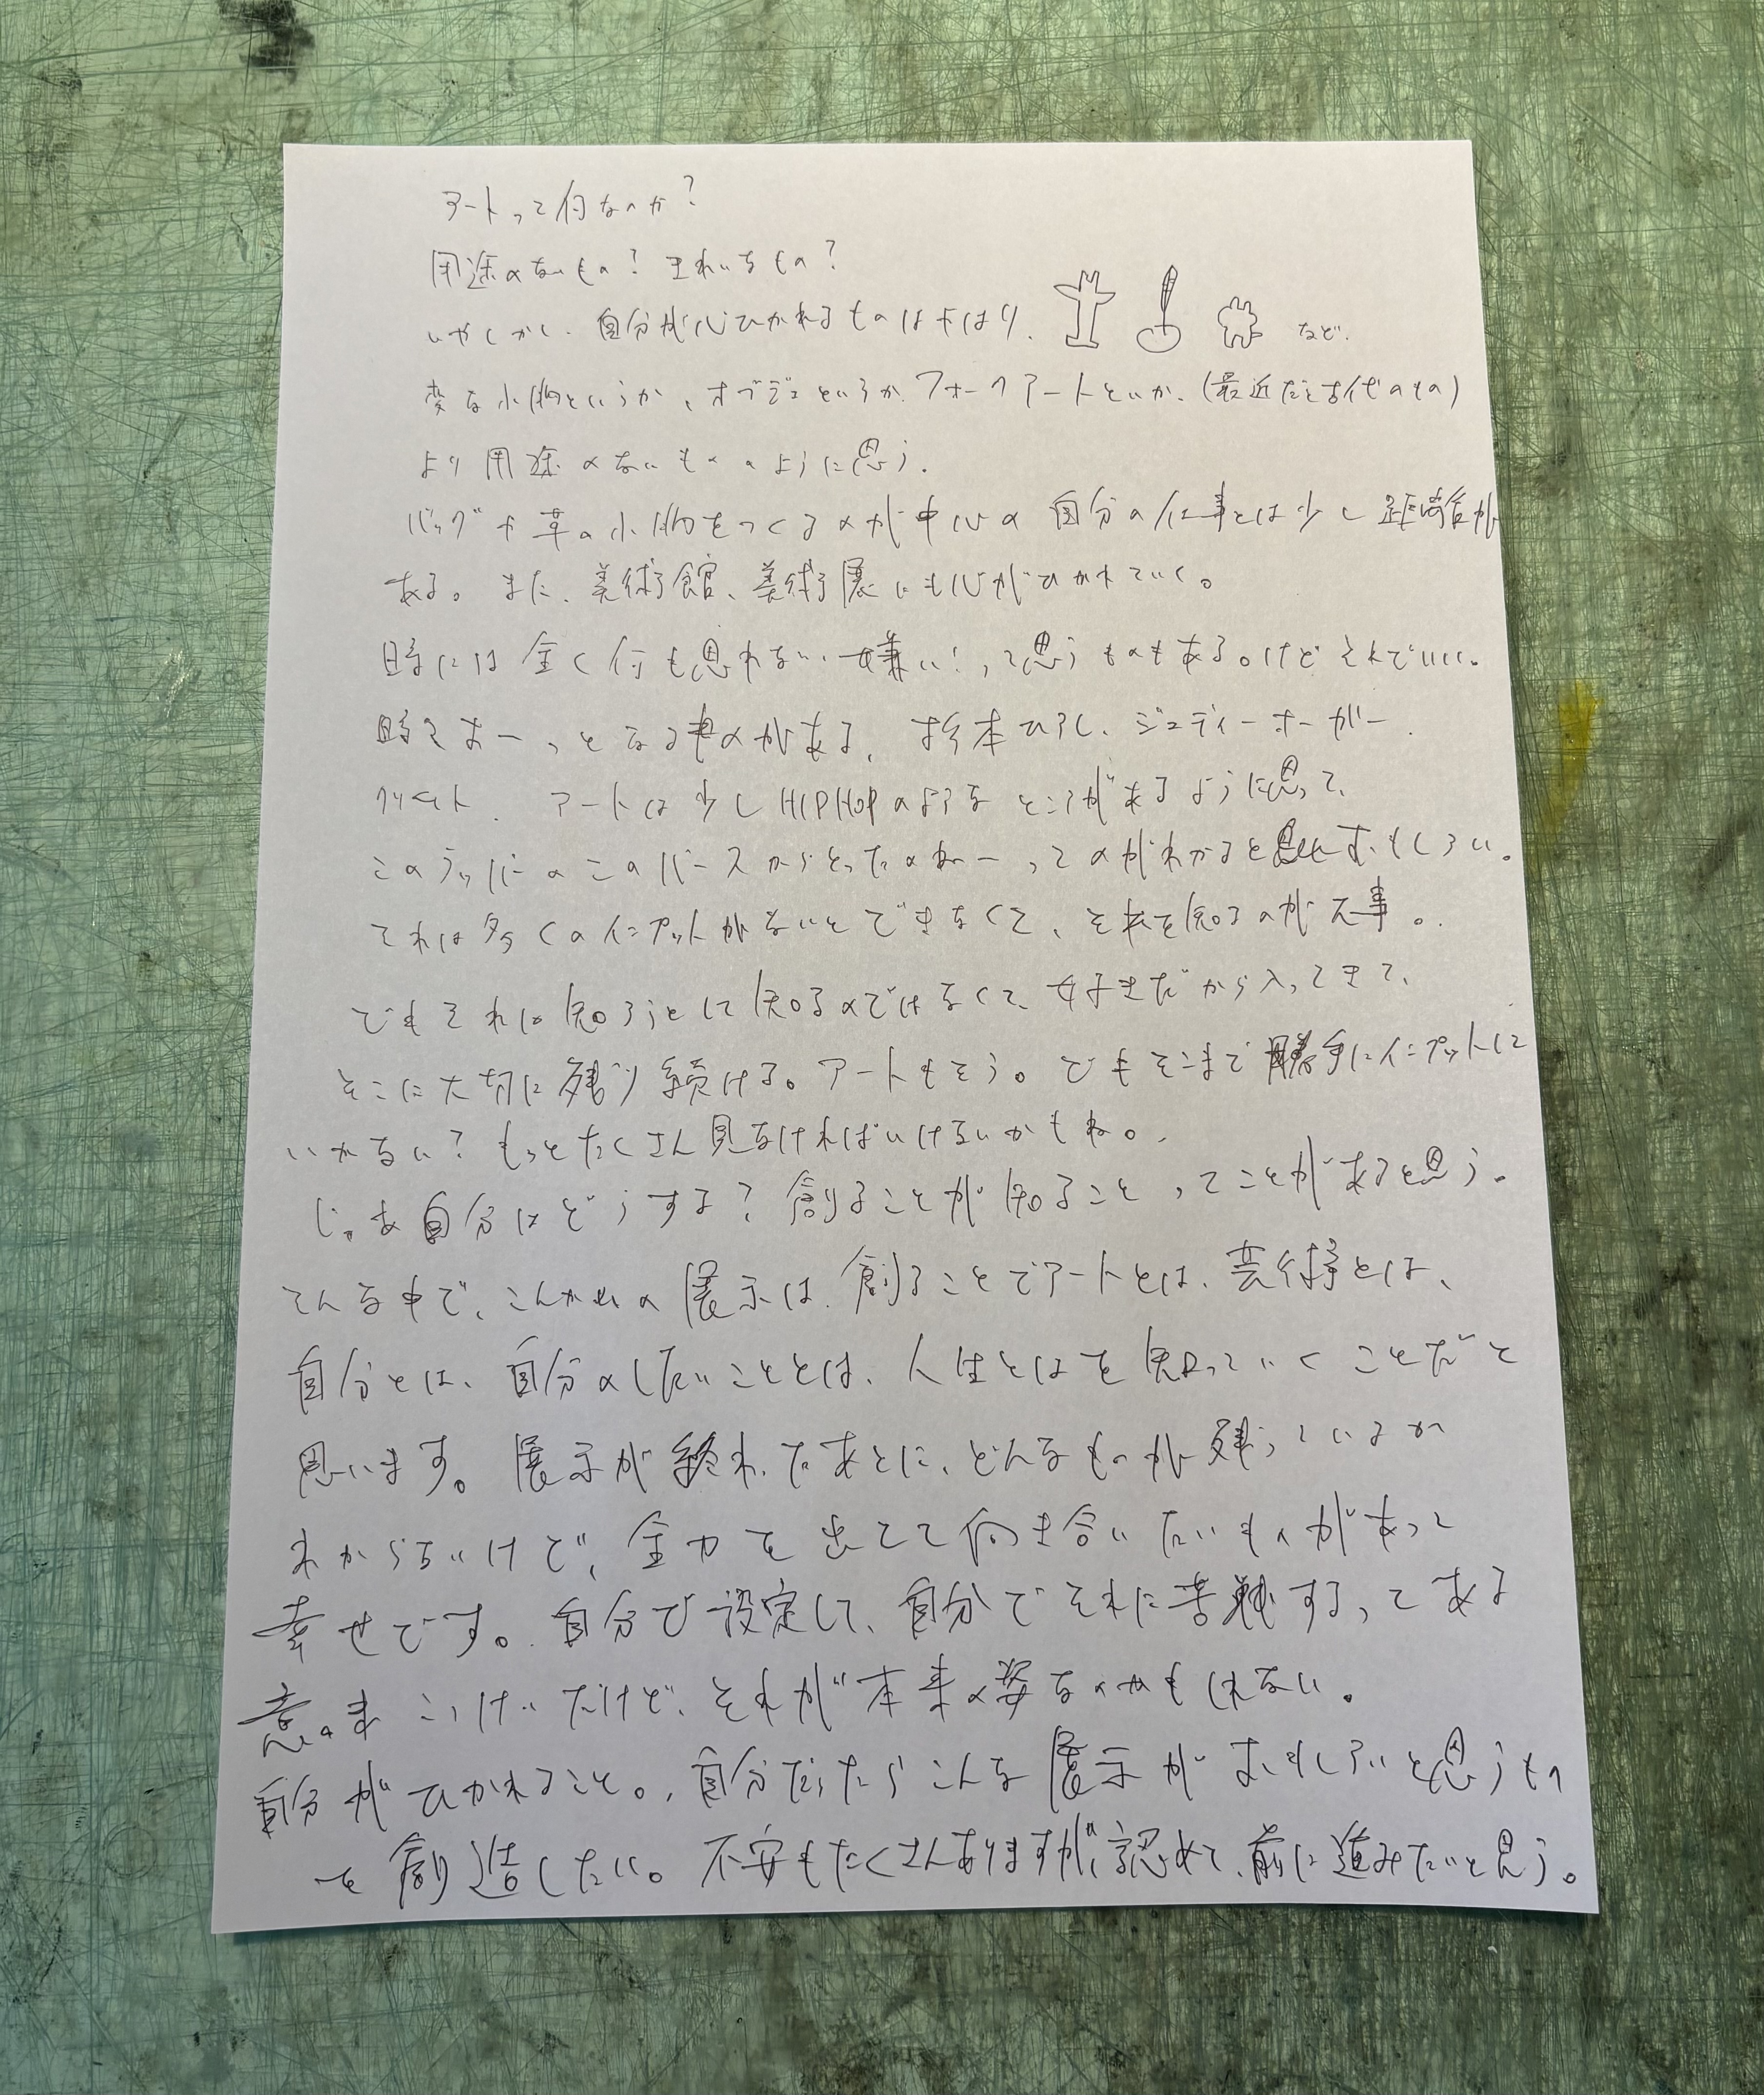 アートって何なのか?
用途のないもの? きれいなもの?
いやしかし、自分が心ひかれるものはやはり、 など.
変な小物というか、オブジェというか、フォークアートといか、(最近だと古代のもの)
より用途のないもののように思う.
バッグや革の小物をつくるのが中心の自分の仕事とは少し距離が
ある。また、美術館、美術展にも心がひかれていく。
時には全く何も思わない、嫌い!って思うものもある。けどそれでいい。
時におーっとなるものがある、杉本ひろし、ジュディーオーガー
アートは少しHIPHOPのようなところがあるように思って、
このラッパーのこのバースからとったのねーってのがわかるとおもしろい。
それは多くのインプットがないとできなくて、それを知るのが大事。
でもそれは知ろうとして知るのではなくて、好きだから入ってきて、
そこに大切に残り続ける。アートもそう。でもそこまで勝手にインプットして
いかない? もっとたくさん見なければいけないかもね。
じゃあ自分はどうする? 創ることが知ることってことがあると思う。
そんな中で、こんかいの展示は、創ることでアートとは、芸術とは、
自分とは、自分のしたいこととは、人生とはを知っていくことだと
思います。展示が終わったあとに、どんなものが残っているか
わからないけど、全力を出して向き合いたいものがあって
幸せです。自分で設定して、自分でそれに苦戦するってある
意味こっけいだけど、それが本来の姿なのかもしれない。
自分がひかれること。自分だったらこんな展示がおもしろいと思うもの
を創造したい。不安もたくさんありますが、認めて、前に進みたいと思う。